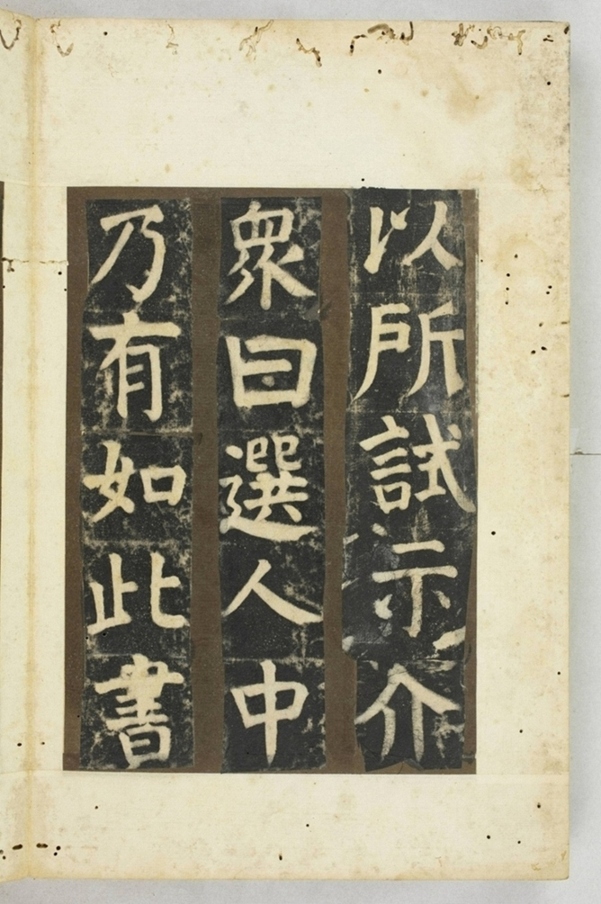 以所試示介
衆曰選人中
乃有如此書